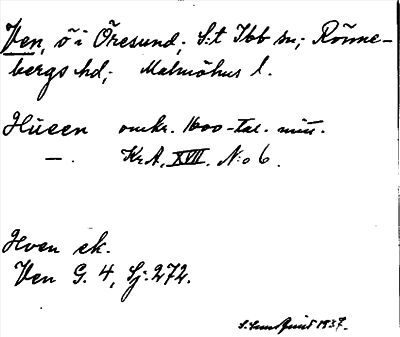 Ven, ö i Öresund; S:t Ibb sn; Rönne-
bergs hd; Malmöhus l.
Hüeen omkr. 1600-tal. mitt.
—. KrA, XVII. N:o 6.
Hven ek.
Ven G. 4, Sj: 272.
1937.